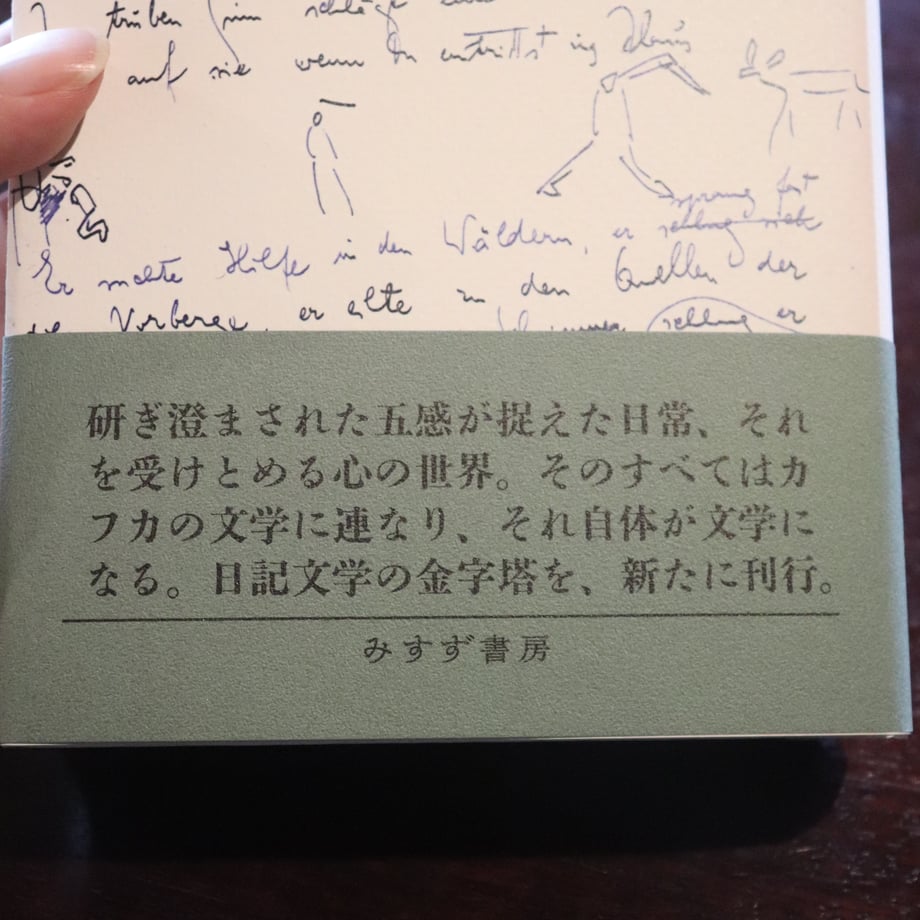 trüben
auf sie wenn Du eintrittst ins Haus
sprang fort
Er suchte Hilfe in den Wäldern, er schlug sich
er eilte zu den Quellen der
Vorberge, schlug er
研ぎ澄まされた五感が捉えた日常、それ
を受けとめる心の世界。そのすべてはカ
フカの文学に連なり、それ自体が文学に
なる。日記文学の金字塔を、新たに刊行。
みすず書房